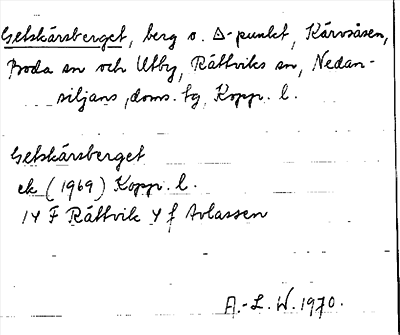 Getskärsberget, berg o. Δ-punkt, Kärvsåsen,
Boda sn och Utby, Rättviks sn, Nedan-
siljans, doms. tg, Kopp. l.
Getskärsberget
ek (1969) Kopp. l.
14 F Rättvik 4 f Avlassen
A.-L. W. 1970.